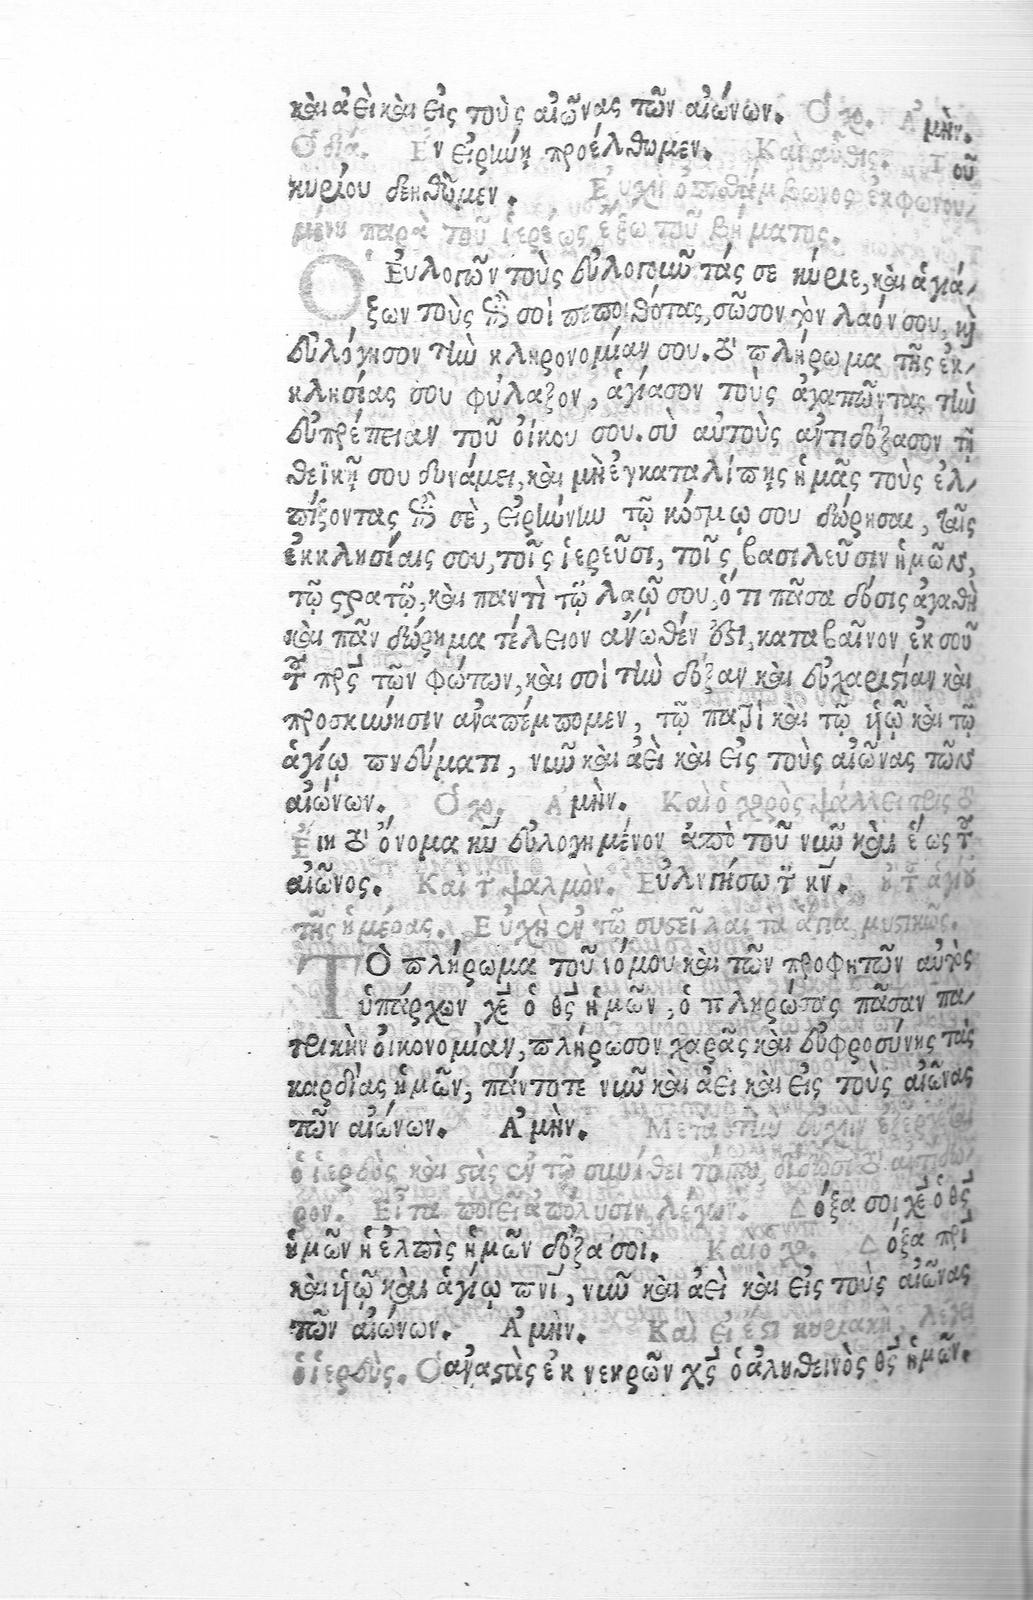 καὶ ἀεὶ καὶ εἰς τοὺς αἰῶνας τῶν αἰώνων. Ὁ χο. Ἀμὴν.
Ὁ διά. Ἐν εἰρήνῃ προέλθωμεν. Καὶ αὖθις. Τοῦ
κυρίου δεηθῶμεν. Εὐχὴ ὀπισθάμβωνος ἐκφωνου-
μένη παρὰ τοῦ ἱερέως ἔξω τοῦ βήματος.
Ὁ Εὐλογῶν τοὺς εὐλογοῦντάς σε κύριε, καὶ ἁγιά-
ζων τοὺς ἐπὶ σοὶ πεποιθότας, σῶσον τὸν λαόν σου, καὶ
εὐλόγησον τὴν κληρονομίαν σου. τὸ πλήρωμα τῆς ἐκ-
κλησίας σου φύλαξον, ἁγίασον τοὺς ἀγαπῶντας τὴν
εὐπρέπειαν τοῦ οἴκου σου. σὺ αὐτοὺς ἀντιδόξασον τῇ
θεϊκῇ σου δυνάμει, καὶ μὴ ἐγκαταλίπῃς ἡμᾶς τοὺς ἐλ-
πίζοντας ἐπὶ σὲ, εἰρήνην τῷ κόσμῳ σου δώρησαι, ταῖς
ἐκκλησίαις σου, τοῖς ἱερεῦσι, τοῖς βασιλεῦσιν ἡμῶν,
τῷ στρατῷ, καὶ παντὶ τῷ λαῷ σου, ὅτι πᾶσα δόσις ἀγαθὴ
καὶ πᾶν δώρημα τέλειον ἄνωθέν ἐστι, καταβαῖνον ἐκ σοῦ
τοῦ πρς τῶν φώτων, καὶ σοὶ τὴν δόξαν καὶ εὐχαριστίαν καὶ
προσκύνησιν ἀναπέμπομεν, τῷ πατρὶ καὶ τῷ υἱῷ καὶ τῷ
ἁγίῳ πνεύματι, νῦν καὶ ἀεὶ καὶ εἰς τοὺς αἰῶνας τῶν
αἰώνων. Ὁ χο. Ἀμὴν. Καὶ ὁ χορὸς ψάλλει τρὶς τὸ
Εἴη τὸ ὄνομα κυ εὐλογημένον ἀπὸ τοῦ νῦν καὶ ἕως τοῦ
αἰῶνος. Καὶ τὸν ψαλμόν. Εὐλογήσω τὸν κν. ἢ τοῦ ἁγίου
τῆς ἡμέρας. Εὐχὴ ἐν τῷ συστεῖλαι τὰ ἅγια, μυστικῶς.
ΤὸΟ πλήρωμα τοῦ νόμου καὶ τῶν προφητῶν αὐτὸς
ὑπάρχων χε ὁ θς ἡμῶν, ὁ πληρώσας πᾶσαν πα-
τρικὴν οἰκονομίαν, πλήρωσον χαρᾶς καὶ εὐφροσύνης τὰς
καρδίας ἡμῶν, πάντοτε νῦν καὶ ἀεὶ καὶ εἰς τοὺς αἰῶνας
τῶν αἰώνων. Ἀμὴν. Μετὰ τὴν εὐχὴν ἐξέρχεται
ὁ ἱερεὺς καὶ στὰς ἐν τῷ συνήθει τόπῳ, δίδωσι τὸ ἀντίδω-
ρον. Εἶτα ποιεῖ ἀπόλυσιν λέγων. Δόξα σοι χε ὁ θς
ἡμῶν ἡ ἐλπὶς ἡμῶν δόξα σοι. Καὶ ὁ χο. Δόξα πρι
καὶ υἱῷ καὶ ἁγίῳ πνι, νῦν καὶ ἀεὶ καὶ εἰς τοὺς αἰῶνας
τῶν αἰώνων. Ἀμὴν. Καὶ εἰ ἔστι κυριακὴ, λέγει
ὁ ἱερεὺς. Ὁ ἀναστὰς ἐκ νεκρῶν χς ὁ ἀληθεινὸς θς ἡμῶν.